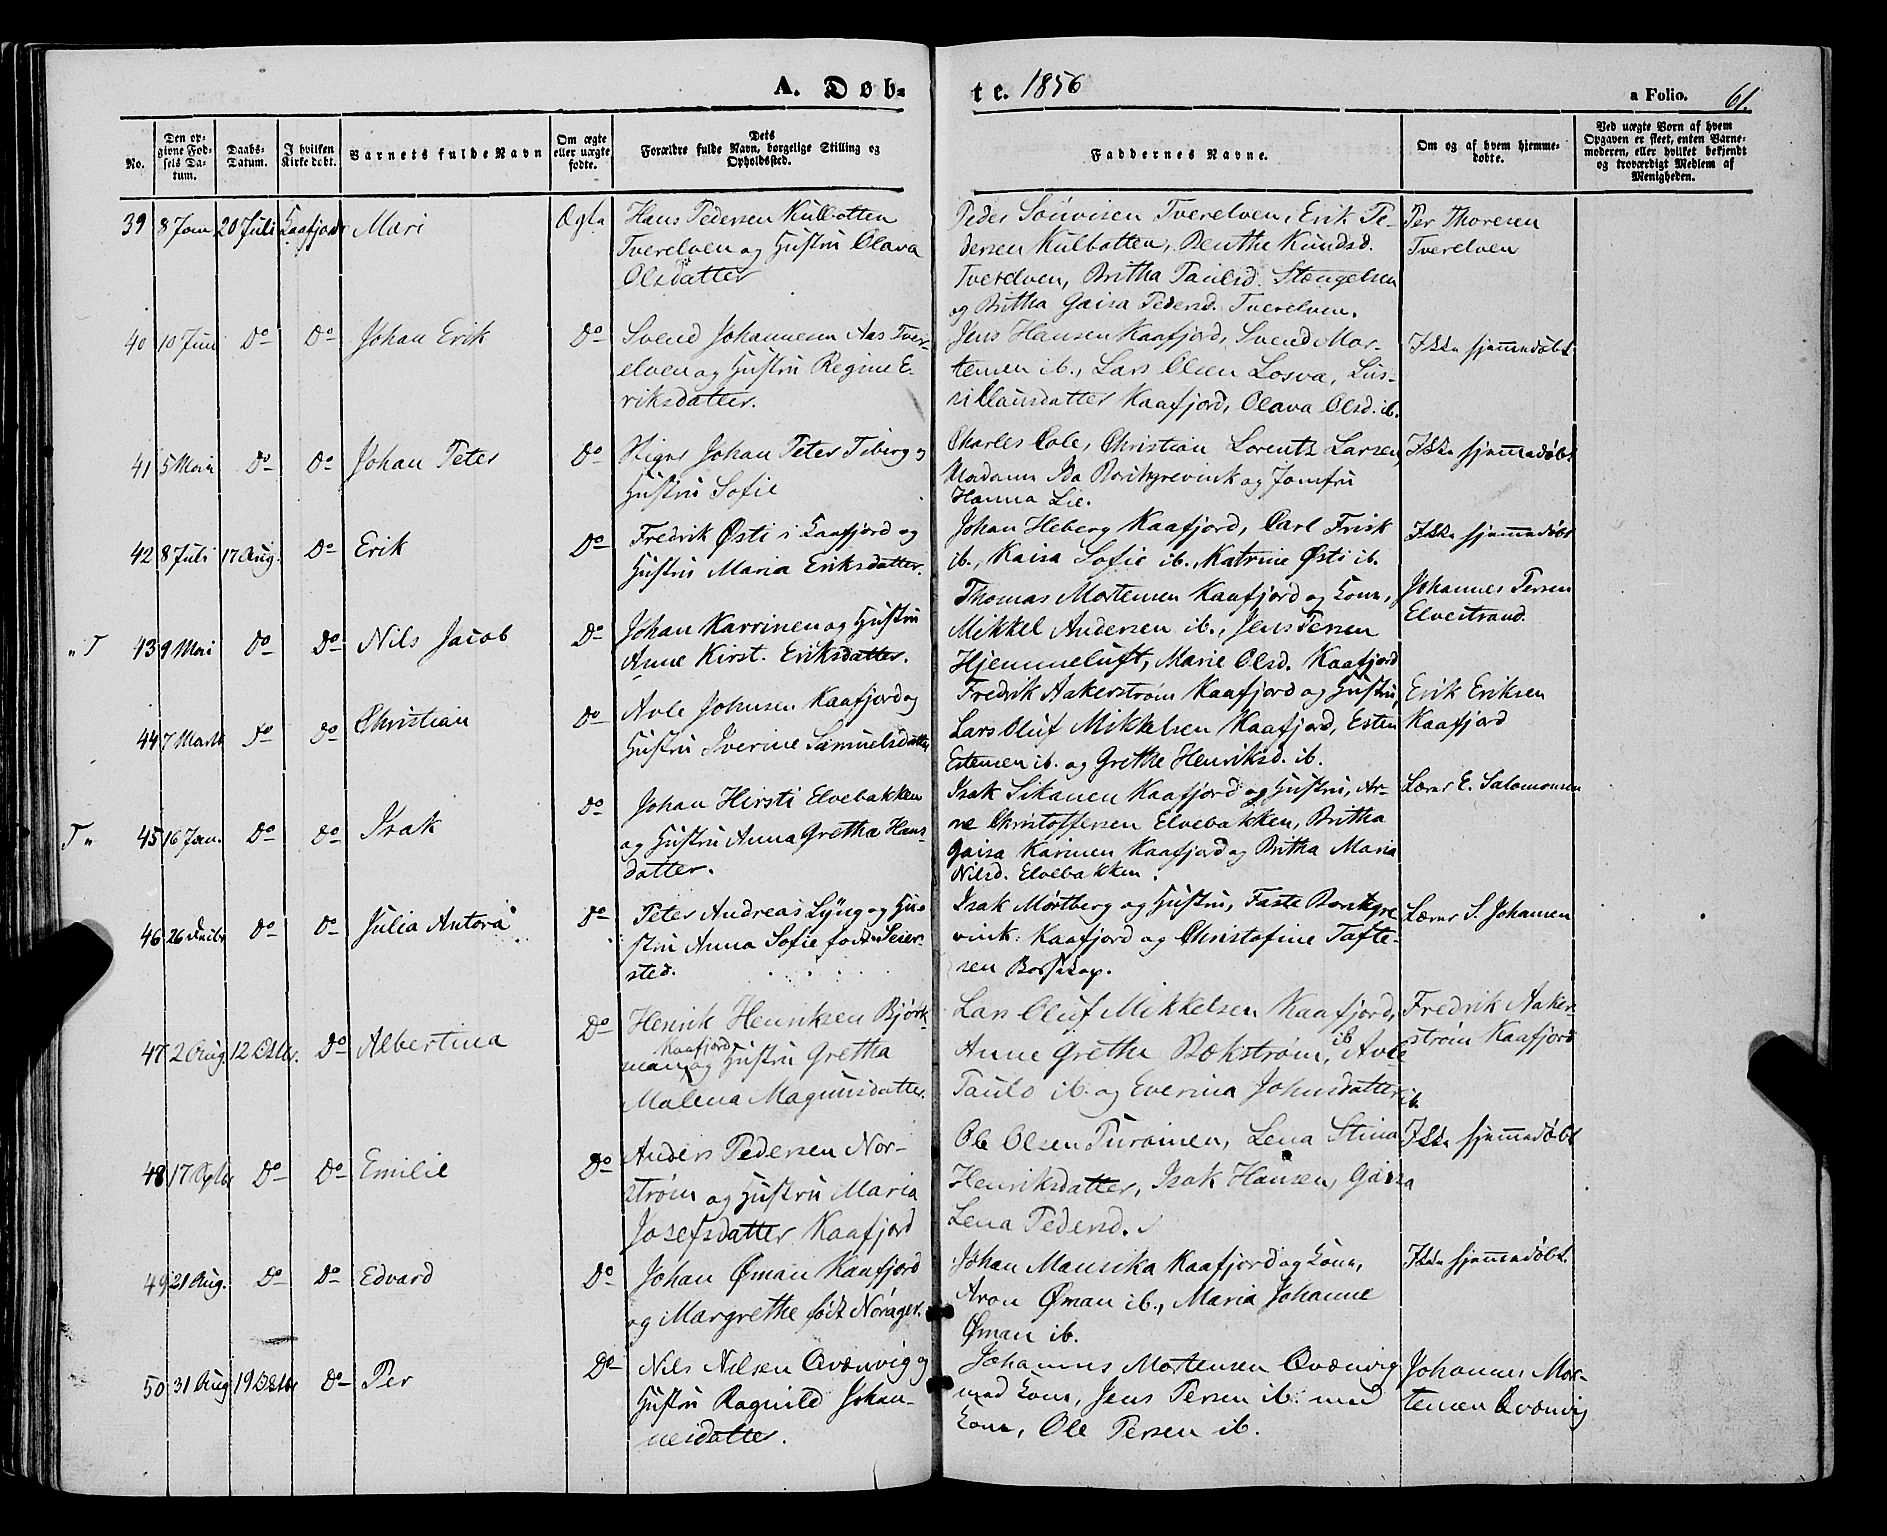 A. Døb-
te. 1856
a Folio. 61.
No.
Den opgivne Fødsels Datum.
Daabs-Datum.
I hvilken Kirke døbt.
Barnets fulde Navn
Om ægte eller uægte fødte.
Dets Forældre fulde Navn, borgelige Stilling og Opholdssted.
Faddernes Navne.
Om og af hvem hjemmedøbte.
Ved uægte Born af hvem Opgaven er skeet, enten Barnemoderen, eller hvilket bekjendt og troværdigt Medlem af Menigheden.
39 8 Jan 20 Juli Kaafjord Mari Ægta
Hans Pedersen Kulbotten
Tverelven og Hustru Olava
Olsdatter
Peder Tverelven, Erik Pe-
dersen Kulbotten, Benthe Knudsd.
Tverelven, Britha Paulsd. Stengelsen
og Britha Gaisa Pedersd. Tverelven.
Per Thoresen
Tverelven
40 10 Juni Do Do Johan Erik Do
Svend Johannesen Aas Tver-
elven og Hustru Regine E-
riksdatter.
Jens Hansen Kaafjord, Svend Mor-
tensen ib., Lars Olsen Losva, Lus-
si Clausdatter Kaafjord, Olava Olsd. ib.
Ikke hjemmedøbt.
41 5 Mai Do Do Johan Peter Do
Johan Peter Tiberg og
Hustru Sofie
Charles Cole, Christian Lorentz Larsen,
Madame Ida Borchgrevink og Jomfru
Hanna Lie.
Ikke hjemmedøbt
42 8 Juli 17 Aug. Do Erik Do
Fredrik Østi i Kaafjord og
Hustru Maria Eriksdatter.
Johan Heberg Kaafjord, Carl Frisk
ib., Kaisa Sofie ib., Katrine Østi ib.
Ikke hjemmedøbt
„T 43 9 Mai Do Do Nils Jacob Do
Johan Karrinen og Hustru
Anne Kirst. Eriksdatter.
Thomas Mortensen Kaafjord og Kone,
Mikkel Andersen ib., Jens Persen
Hjemmeluft, Marie Olsd. Kaafjord
Johannes Persen
Elvestrand.
44 7 Marts Do Do Christian Do
Avle Johnsen Kaafjord og
Hustru Iverine Samuelsdatter
Fredrik Aakerstrøm Kaafjord og Hustru,
Lars Oluf Mikkelsen Kaafjord, Esten
Estensen ib. og Grethe Henriksd. ib.
Erik Eriksen
Kaafjord
T „ 45 16 Jan. Do Do Isak Do
Johan Hirsti Elvebakken
og Hustru Anna Gretha Hans
datter.
Isak Sikanen Kaafjord og Hustru, Ar-
ne Christoffersen Elvebakken, Britha
Gaisa Karinen Kaafjord og Britha Maria
Nilsd. Elvebakken.
Lærer E. Salomonsen
46 26 Do Do Julia Antora Do
Peter Andreas Lyng og Hu-
stru Anna Sofie født Seier-
sted.
Isak Mørtberg og Hustru, Faste Borchgre
vink Kaafjord og Christofine Tafte-
sen Bossekop.
Lærer S. Johansen
47 2 Aug 12 Octbr. Do Albertina Do
Henrik Henriksen Bjørk-
man, Kaafjord og Hustru Gretha
Malena Magnusdatter.
Lars Oluf Mikkelsen Kaafjord,
Anne Grethe Bækstrøm, ib Avle
Paulo ib. og Everina Johnsdatter ib.
Fredrik Aaker
strøm Kaafjord
48 17 Do Do Emilie Do
Anders Pedersen Nor-
strøm og Hustru Maria
Josefsdatter Kaafjord
Ole Olsen Puroinen, Lena Stina
Henriksdatter, Isak Hansen, Gaisa
Lena Pedersd.
Ikke hjemmedøbt
49 21 Aug. Do Do Edvard Do
Johan Øman Kaafjord
og Margrethe født Norager.
Johan Mansika Kaafjord og Kone,
Aron Øman ib., Maria Johanne
Øman ib.
Ikke hjemmedøbt.
50 31 Aug 19 Octbr Do Per Do
Nils Nilsen Qvænvig og
Hustru Ragnild Johan-
nesdatter.
Johannes Mortensen Qvænvig
med Kone, Jens Persen ib. med
Kone, Ole Persen ib.
Johannes Mor-
tensen Qvænvig